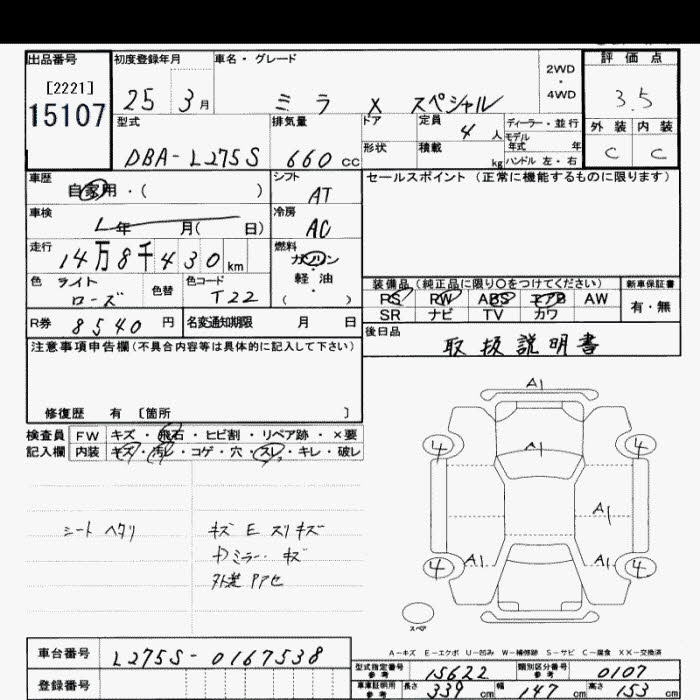 出品番号 初度登録年月 車名・グレード 評価点
[2221] 2WD・4WD
15107 25 3月 ミラ X スペシャル 3.5
型式 排気量 ドア 定員 4人 ディーラー・並行 外装 内装
形状 積載 kg モデル年式 年 ハンドル 左・右
DBA-L275S 660cc C C
車歴 シフト セールスポイント(正常に機能するものに限ります)
自家用・( ) AT
車検 年 月( 日) 冷房 AC
走行 14万8千430km 燃料 ガソリン・軽油( )
色 ライトローズ 色替 色コード T22
装備品(純正品に限り○をつけてください) 新車保証書
PS RW ABS エアB AW 有・無
SR ナビ TV カワ
R券 8540円 名変通知期限 月 日
後日品 取扱説明書
注意事項申告欄(不具合内容等は具体的に記入して下さい)
修復歴 有〔箇所 〕
検査員 FW キズ・飛石・ヒビ割・リペア跡・×要
記入欄 内装 キズ・汚・コゲ・穴・スレ・キレ・破レ
シート ヘタリ キズ E スリキズ
ミラー キズ
A1
4 A1 4
A1
4 A1 A1 4
スペア
A-キズ E-エクボ U-凹み W-補修跡 S-サビ C-腐食 XX-交換済
車台番号 L275S-0167538
登録番号
型式指定番号 参考 15622 類別区分番号 参考 0107
車庫証明用 参考 長さ 339cm 幅 147cm 高さ 153cm